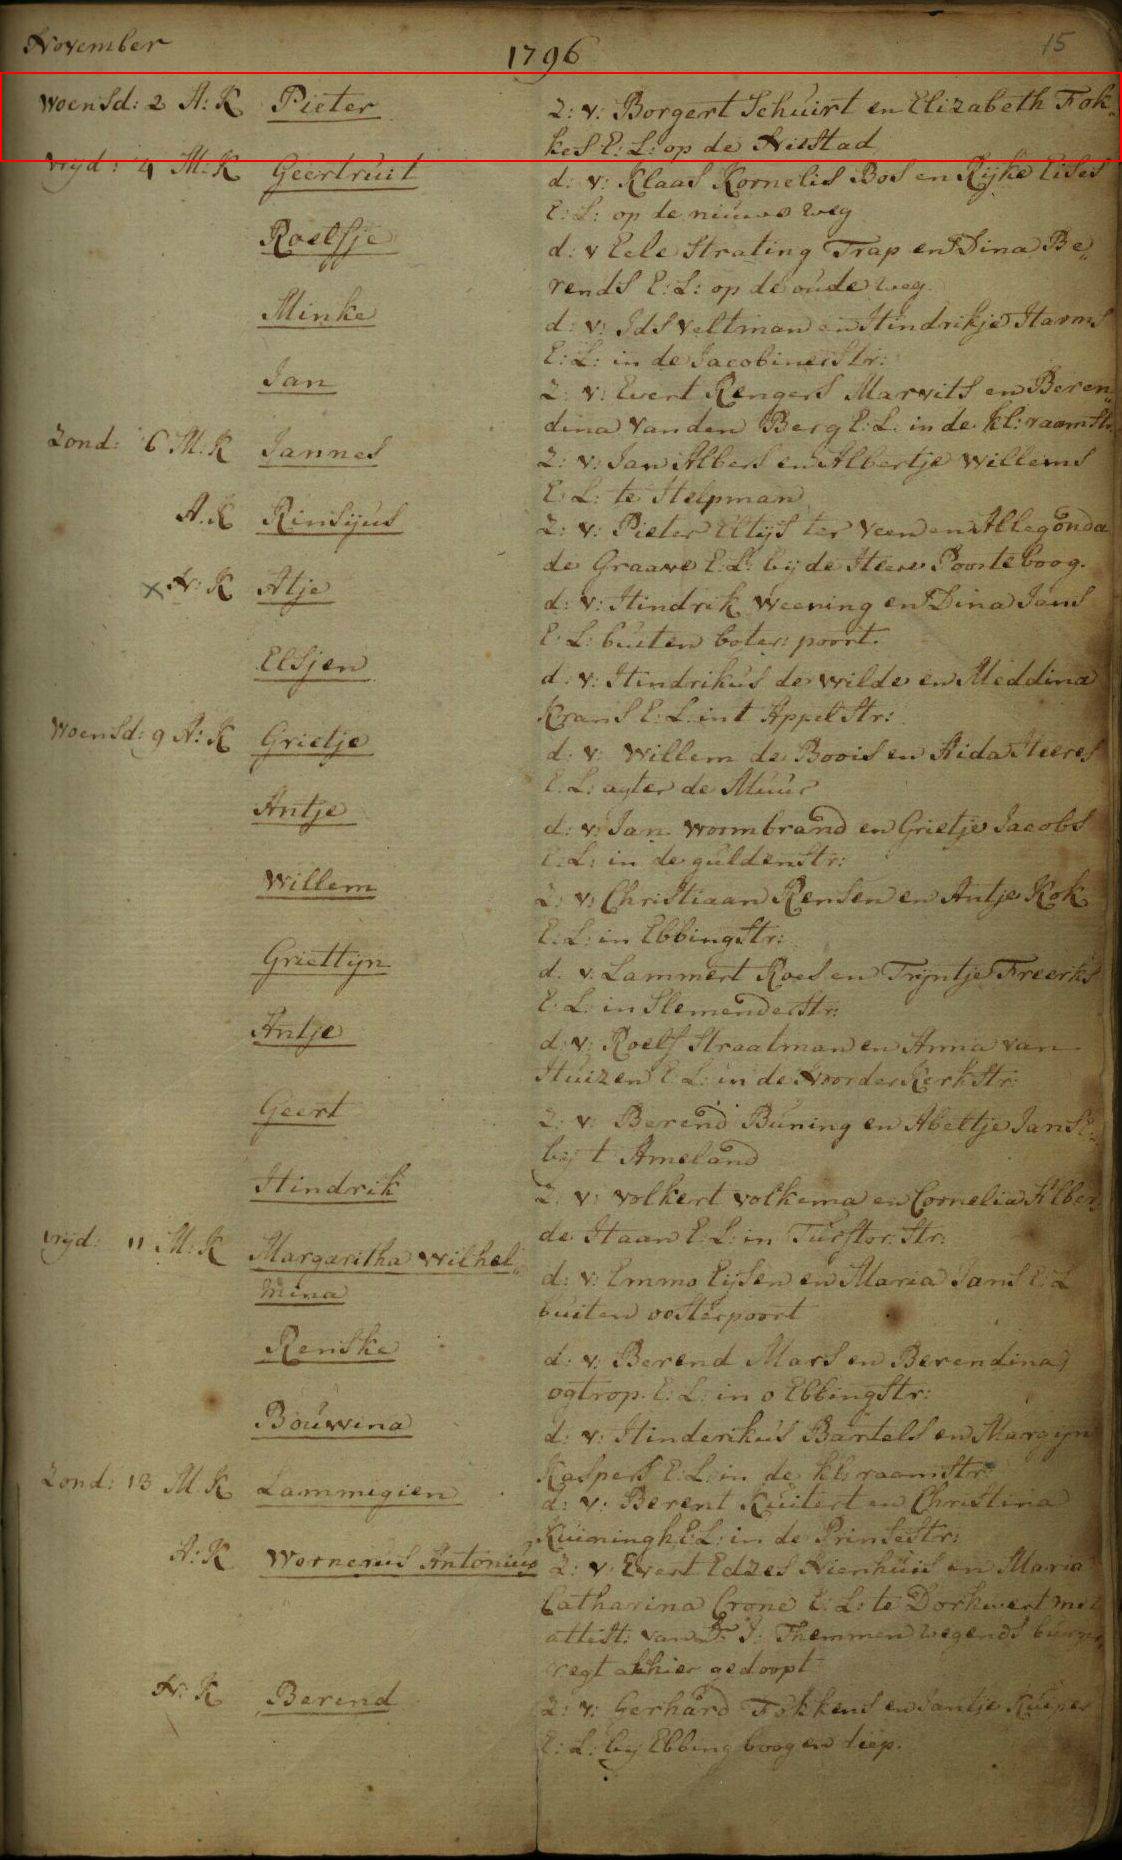 November
1796
15
Woensd: 2 A: K Pieter Z: v: Borgert Schuirt en Elizabeth Fok„
kes E: L: op de Nistad
vrijd: 4 M: K Geertruit d: v: Klaas Kornelis Bos en Rijke Eises
E: L: op de nieuwe weg
Roelfje d: v Eele Strating Trap en Dina Be„
rends E: L: op de oude weg
Minke d: v: Ids Veltman en Hindrikje Harms
E: L: in de Jacobiner Str:
Jan Z: v: Evert Rengers Marvits en Beren„
dina van den Berg E: L: in de kl: raamstr.
Zond: 6 M: K Jannes Z: v: Jan Albers en Albertje Willems
E L: te Helpman
A. K Rinsijus Z: v: Pieter Eltijs ter Veen en Allegonda
de Graave E: L: bij de Heere Poorte boog.
x N: K Atje d: v: Hindrik Weening en Dina Jans
E L: buiten boter: poort.
Elsjen d: v: Hindrikus de Wilde en Meddina
Krans E: L: int Appel Str:
Woensd: 9 A: K Grietje d: v: Willem de Boois en Aida Heeres
E: L: agter de Muur
Antje d: v: Jan Wormbrand en Grietje Jacobs
E: L: in de guldenstr:
Willem Z: v: Christiaan Rensen en Antje Kok
E: L: in Ebbingstr:
Griettijn d. v. Lammert Roes en Trijntje Freerks
E: L: in Slemenderstr:
Antje d: v: Roelf Straatman en Anna van
Huizen E: L: in de Noorder Kerk Str:
Geert Z: v: Berend Buning en Abeltje Jans E„
bij t Ameland
Hindrik Z v: Volkert Volkema en Cornelia Alber
de Haan E: L: in Turftor: Str:
vrijd: 11 M: K Margaritha Wilhel„ d: v: Emmo Eijsen en Maria Jans E: L
mina buiten oosterpoort
Renske d: v: Berend Mars en Berendina
ogtrop. E: L: in o Ebbingstr:
Bouwina d: v: Hinderikus Bartels en Margijn
Kaspers E: L: in de kl: raamstr:
Zond: 13 M. K Lammigien d: v: Berent Kuitert en Christina
Kuiningh E: L: in de Prinsestr:
A: K Wernerus Antonius Z: v: Evert Edzes Nienhuis en Maria
Catharina Crone E: L: te Dorkwert met
attest: van Ds. J: Themmen wegends burger„
regt alhier gedoopt
N: K Berend Z: v: Gerhard Fokkens en Jantje Kuiper
E: L: bij Ebbing boog en diep.